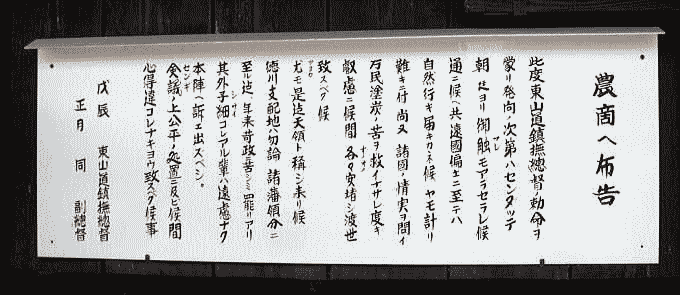 農商ヘ布告
此度東山道鎮撫總督ノ勅命ヲ
蒙リ發向ノ次第ハセンダッテ
朝廷ヨリ御触モアラセラレ候
フレ
通ニ候ヘ共 遠國偏土ニ至テハ
自然行キ届キカネ候 ヤモ計リ
難キニ付 尚又 諸國ノ情実ヲ問イ
万民塗炭ノ苦ヲ救イナサレ度キ
叡慮ニ候間 各々安堵シ渡世
致スベク候
尤モ是迄天領ト稱シ来リ候
徳川支配地ハ勿論 諸藩領分ニ
至ル迄 年来苛政ニ苦シミ罷リアリ
其外子細コレアル輩ハ遠慮ナク
シサイ
本陣ヘ訴エ出ズベシ。
センギ
僉議ノ上公平ノ処置ニ及ビ候間
心得違コレナキヨウ致スベク候事
戊辰 東山道鎮撫總督
正月 同 副總督